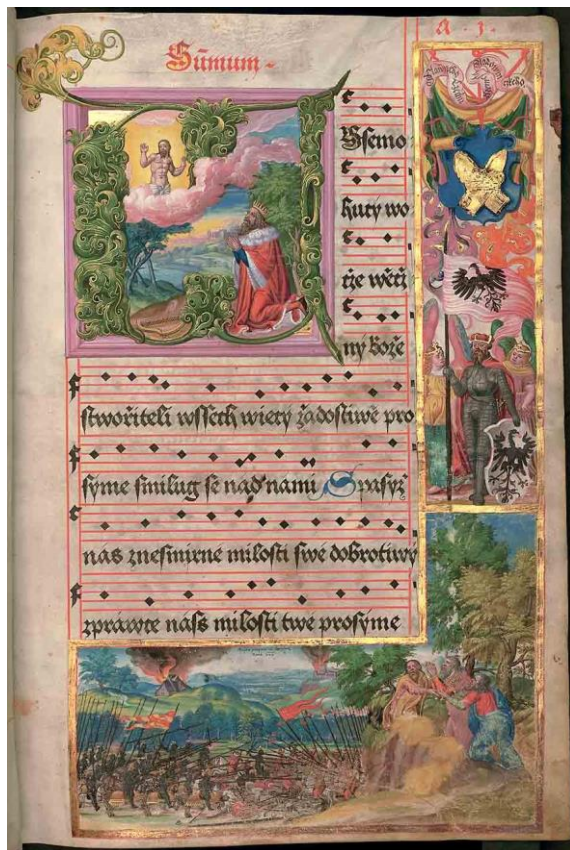 A · j ·
Sūmum ·
Wssemo
hutý wo
tče wěčž
ný bože
stwořiteli wssech wieczý žadostiwě pro
sýme smilug se nad nami Spasýž
nas znesmirné milosti swé dobrotiwý
zpráwce nass milosti twé prosýme